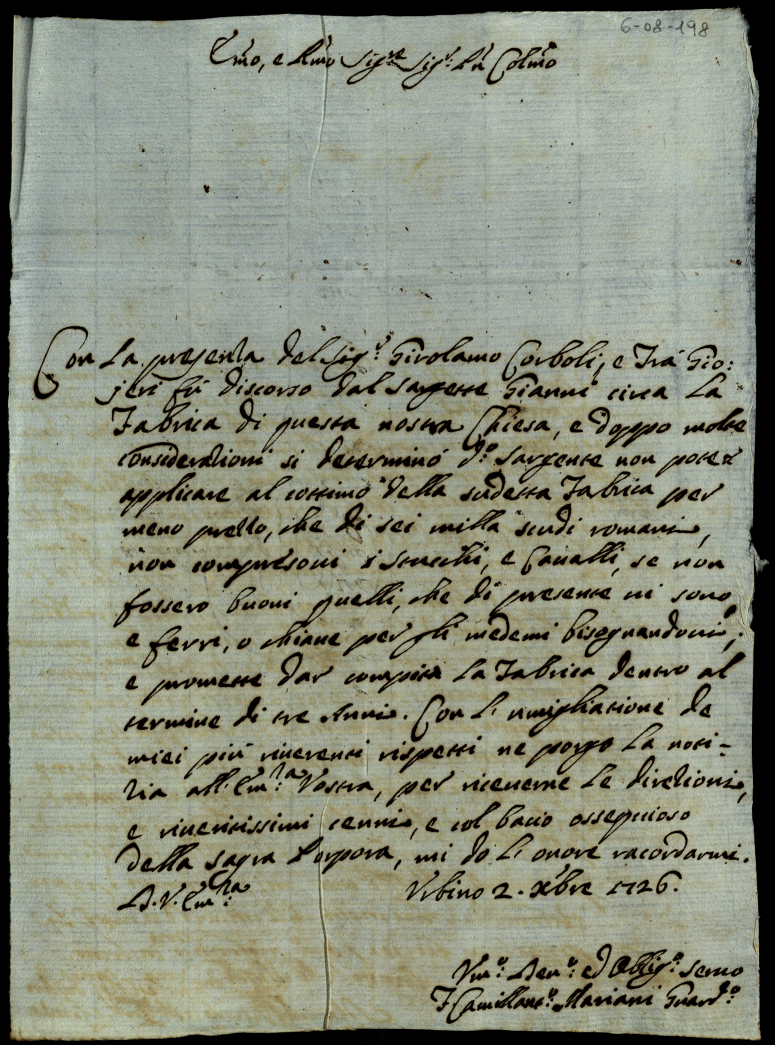 6-08-198
Em̃o, e Rm̃o Sig.re Sig.r P.rn Colm̃o
Con la presenza del Sig.r Girolamo Corboli, e Frà Gio:
jeri fù discorso dal Sargente Gianni circa la
Fabrica di questa nostra Chiesa, e doppo molte
considerazioni si determinò d.o Sargente non poter
applicare al cottimo della sudetta Fabrica per
meno prezzo, che di sei milla scudi romani,
non compresovi i stucchi, e Cavalli, se non
fossero buoni quelli, che di presente vi sono
e ferri, o chiave per gli medemi bisognandovi,
e promette dar compita la Fabrica dentro al
termine di tre Anni. Con l'umigliazione de
miei più riverenti rispetti ne porgo la noti-
zia all'Em.za Vostra, per riceverne le direzioni,
e riveritissimi cenni, e col bacio ossequioso
della Sagra Porpora, mi do l'onore racordarmi.
D. V. Em.za
Urbino 2. Xbre 1726.
Um.o Dev.o ed Obblig.o servo
F Camillo Mariani Guard.o